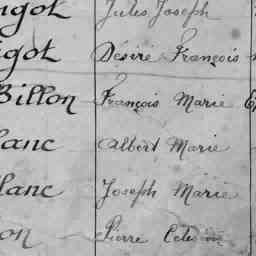 igot Jules Joseph
igot Désiré François
Billon François Marie
lanc Albert Marie
lanc Joseph Marie
on Pierre Celestin